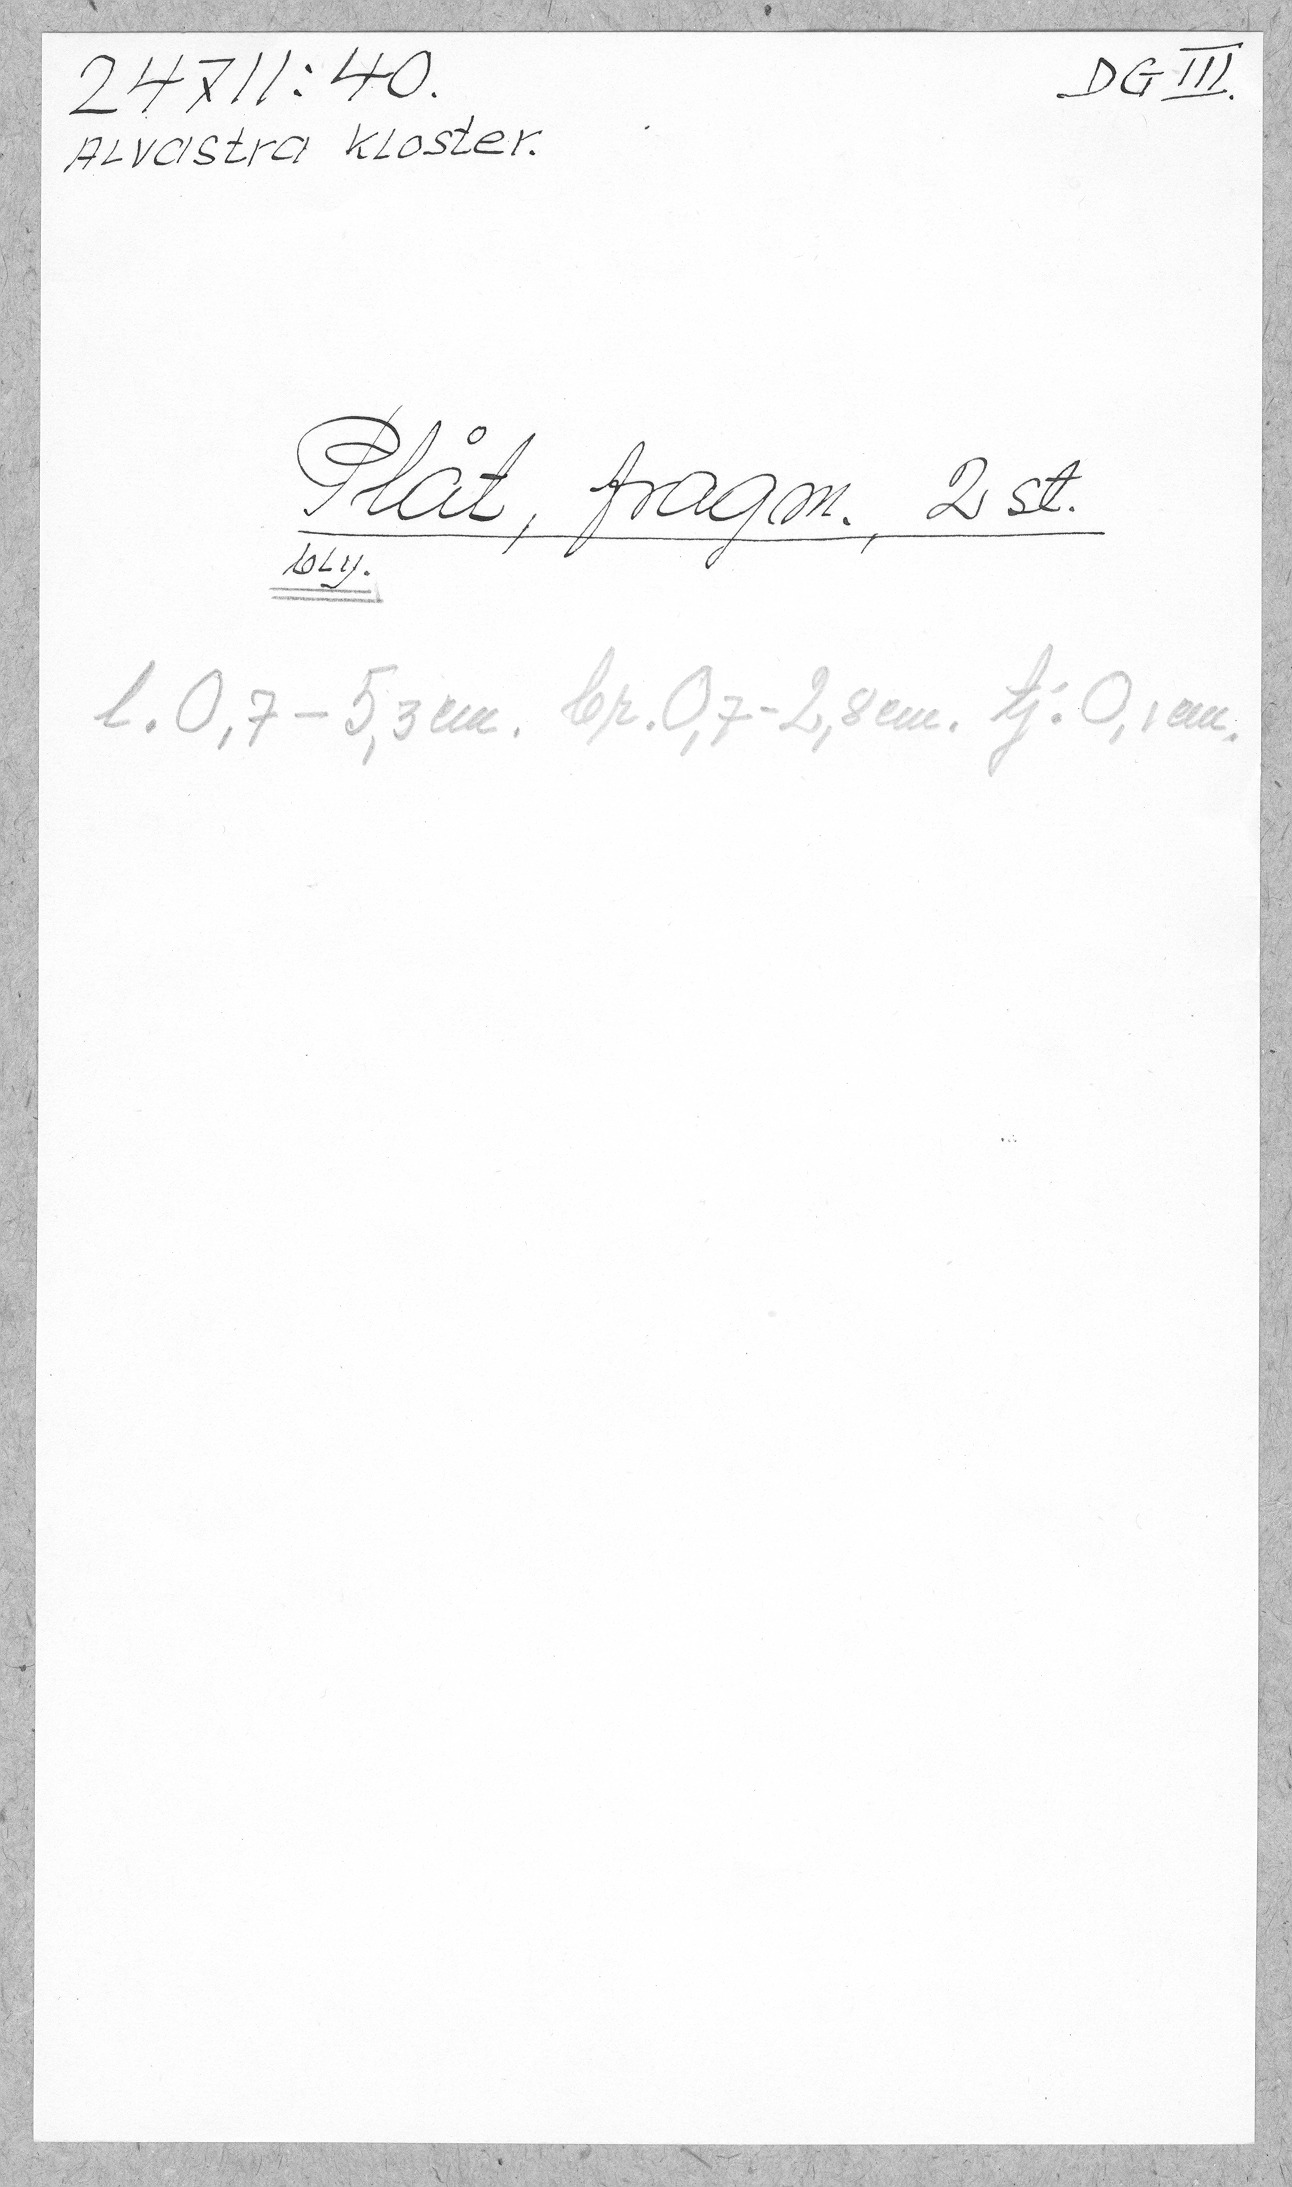 24711:40.
DG III.
Alvastra kloster.
Plåt, fragm., 2 st.
bly.
l. 0,7 – 5,3 cm. br. 0,7 - 2,8 cm. tj. 0,1 cm.